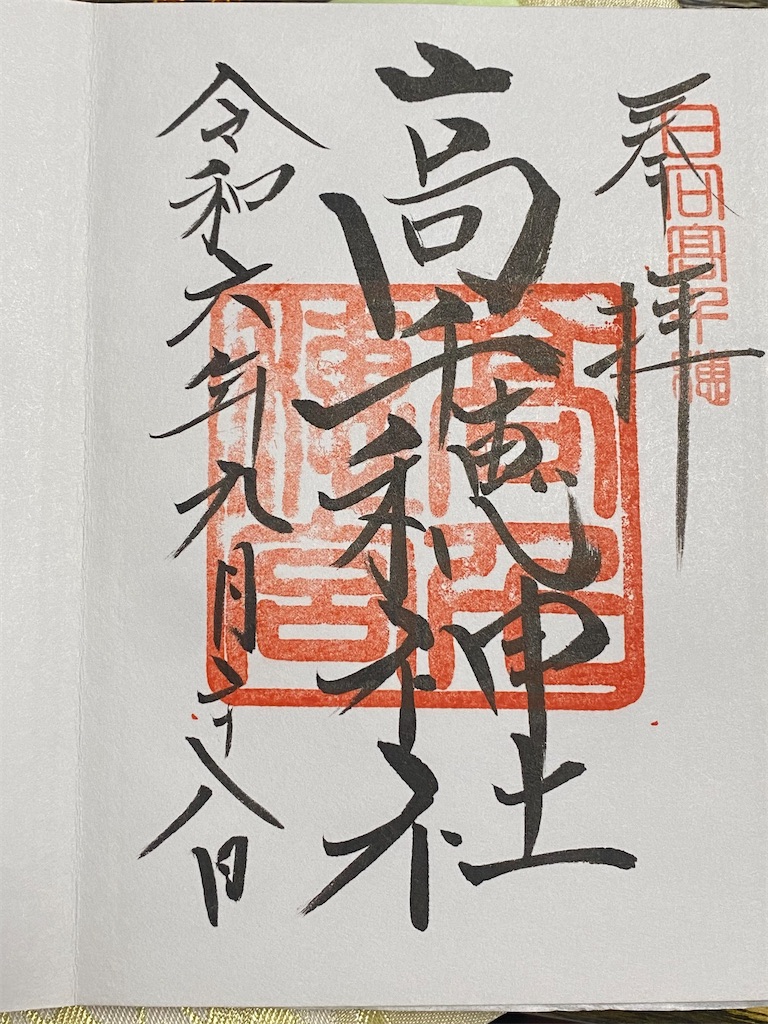 奉拝
日向高千穂
高千穂神社
令和六年九月二十八日